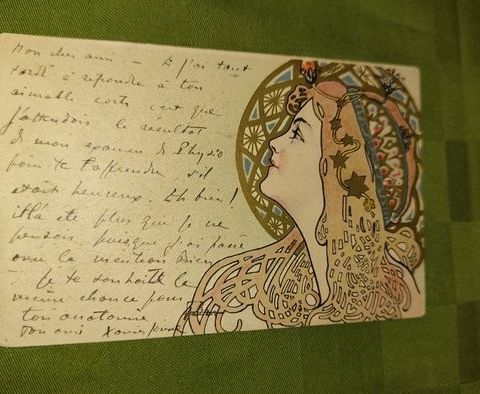 Mon cher ami — Si j'ai tant
tardé à répondre à ton
aimable carte c'est que
j'attendais le résultat
de mon examen de Physio
pour te l'apprendre s'il
était heureux. Eh bien !
il l'a été plus que je ne
pensais puisque j'ai passé
avec la mention Bien
— Je te souhaite la
même chance pour
ton anatomie
Ton ami